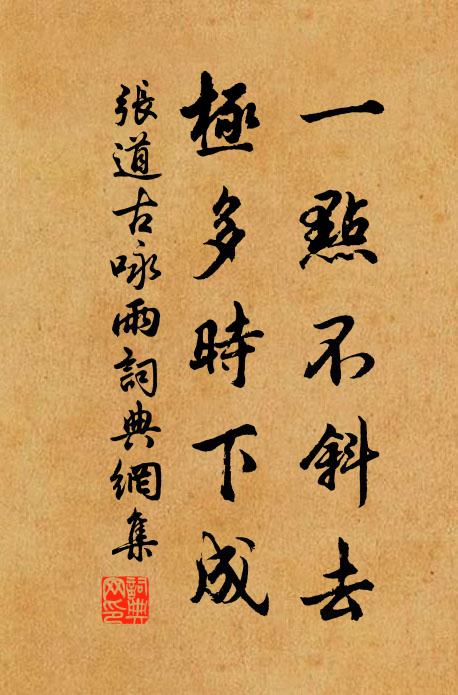 一點不斜去
極多時下成
張道古咏雨詞典網集
詞典
网印